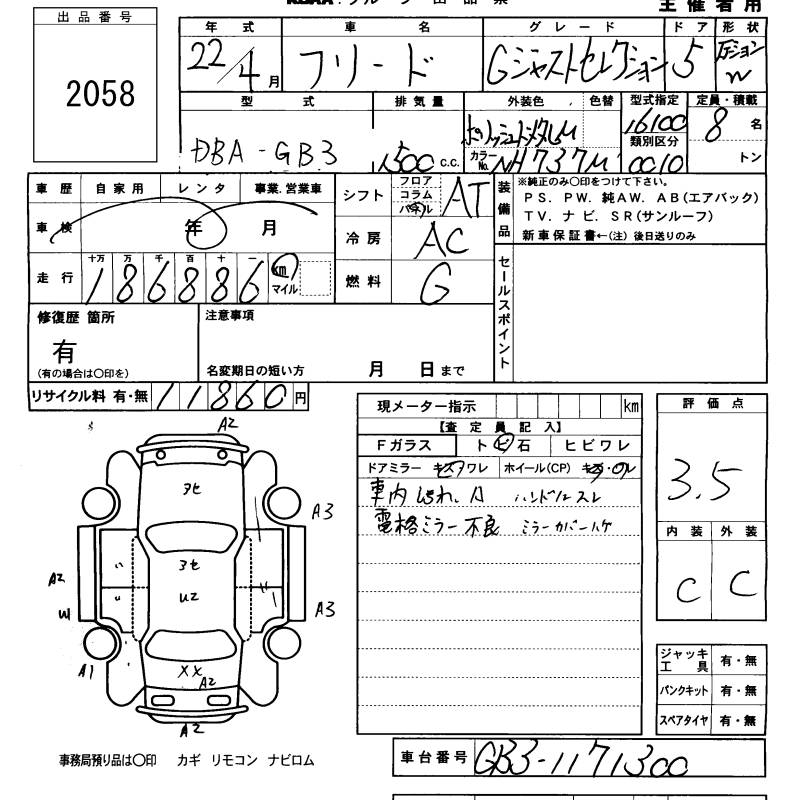 主催者用
出品番号
2058
年式 車名 グレード ドア 形状
22/4月 フリード Gジャストセレクション 5
型式 排気量 外装色 色替 型式指定 定員・積載
DBA-GB3 1500 c.c. ポリッシュドメタルM 16100 8名
類別区分
カラーNo. NH737M 0010 トン
車歴 自家用 レンタ 事業.営業車
車検 年 月
走行 十万 万 千 百 十 一
186886 km マイル
シフト フロア コラム パネル AT
冷房 AC
燃料 G
装備品
※純正のみ〇印をつけて下さい。
PS. PW. 純AW. AB(エアバック)
TV. ナビ. SR(サンルーフ)
新車保証書←(注) 後日送りのみ
セールスポイント
修復歴 箇所
有
(有の場合は〇印を)
注意事項
名変期日の短い方 月 日まで
リサイクル料 有・無 11860円
現メーター指示 km
【査定員記入】
Fガラス トビ石 ヒビワレ
ドアミラー キズワレ ホイール(CP) キズ・ワレ
車内 よごれ、A ハンドルスレ
電格ミラー不良 ミラーカバーハゲ
評価点
3.5
内装 外装
C C
ジャッキ工具 有・無
パンクキット 有・無
スペアタイヤ 有・無
A2
アセ
A3
アセ
A2
U2
W
A3
A1
XX
A2
A2
事務局預り品は〇印 カギ リモコン ナビロム
車台番号 GB3-1171300